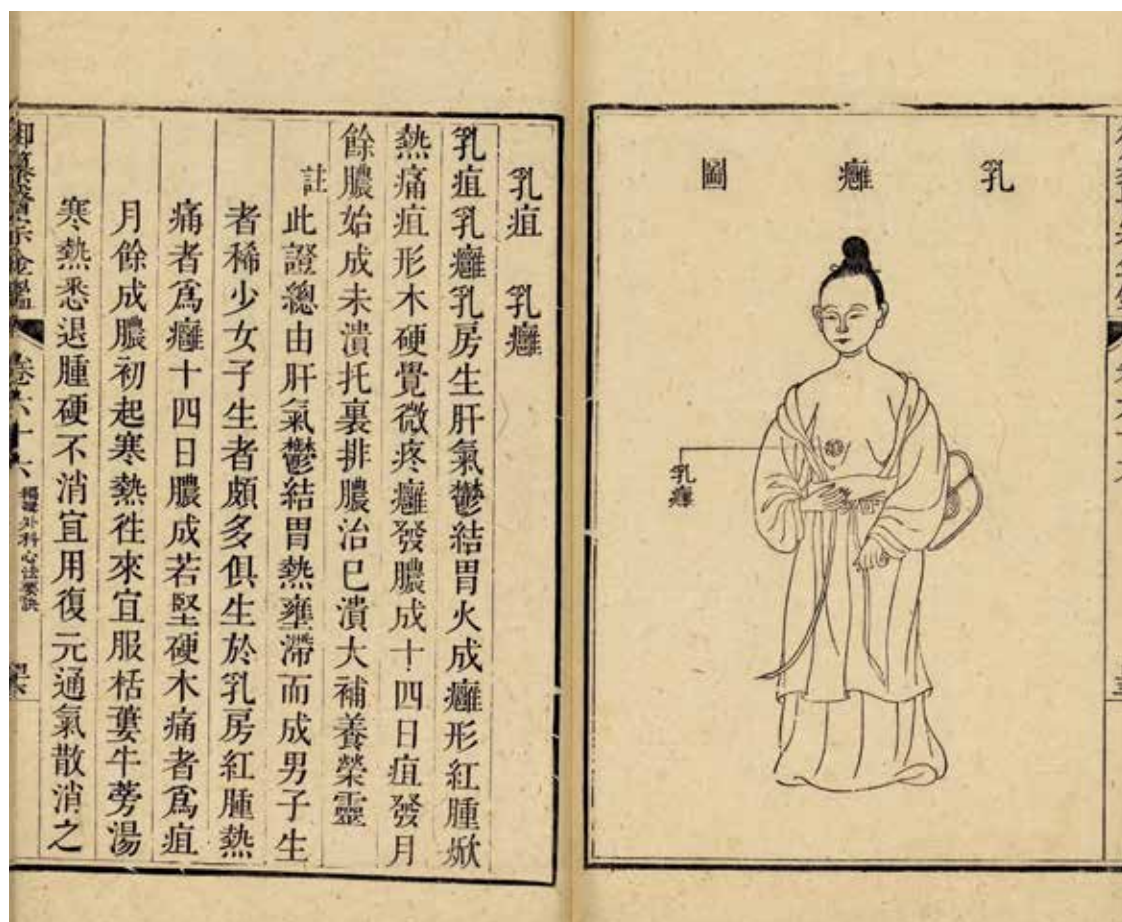 乳癰圖
乳癰
乳疽 乳癰
乳疽乳癰乳房生肝氣鬱結胃火成癰形紅腫焮
熱痛疽形木硬覺微疼癰發膿成十四日疽發月
餘膿始成未潰托裏排膿治已潰大補養榮靈
註 此證總由肝氣鬱結胃熱壅滯而成男子生
者稀少女子生者頗多俱生於乳房紅腫熱
痛者爲癰十四日膿成若堅硬木痛者爲疽
月餘成膿初起寒熱徃來宜服栝蔞牛蒡湯
寒熱悉退腫硬不消宜用復元通氣散消之
御纂醫宗金鑑 卷六十六 編輯外科心法要訣